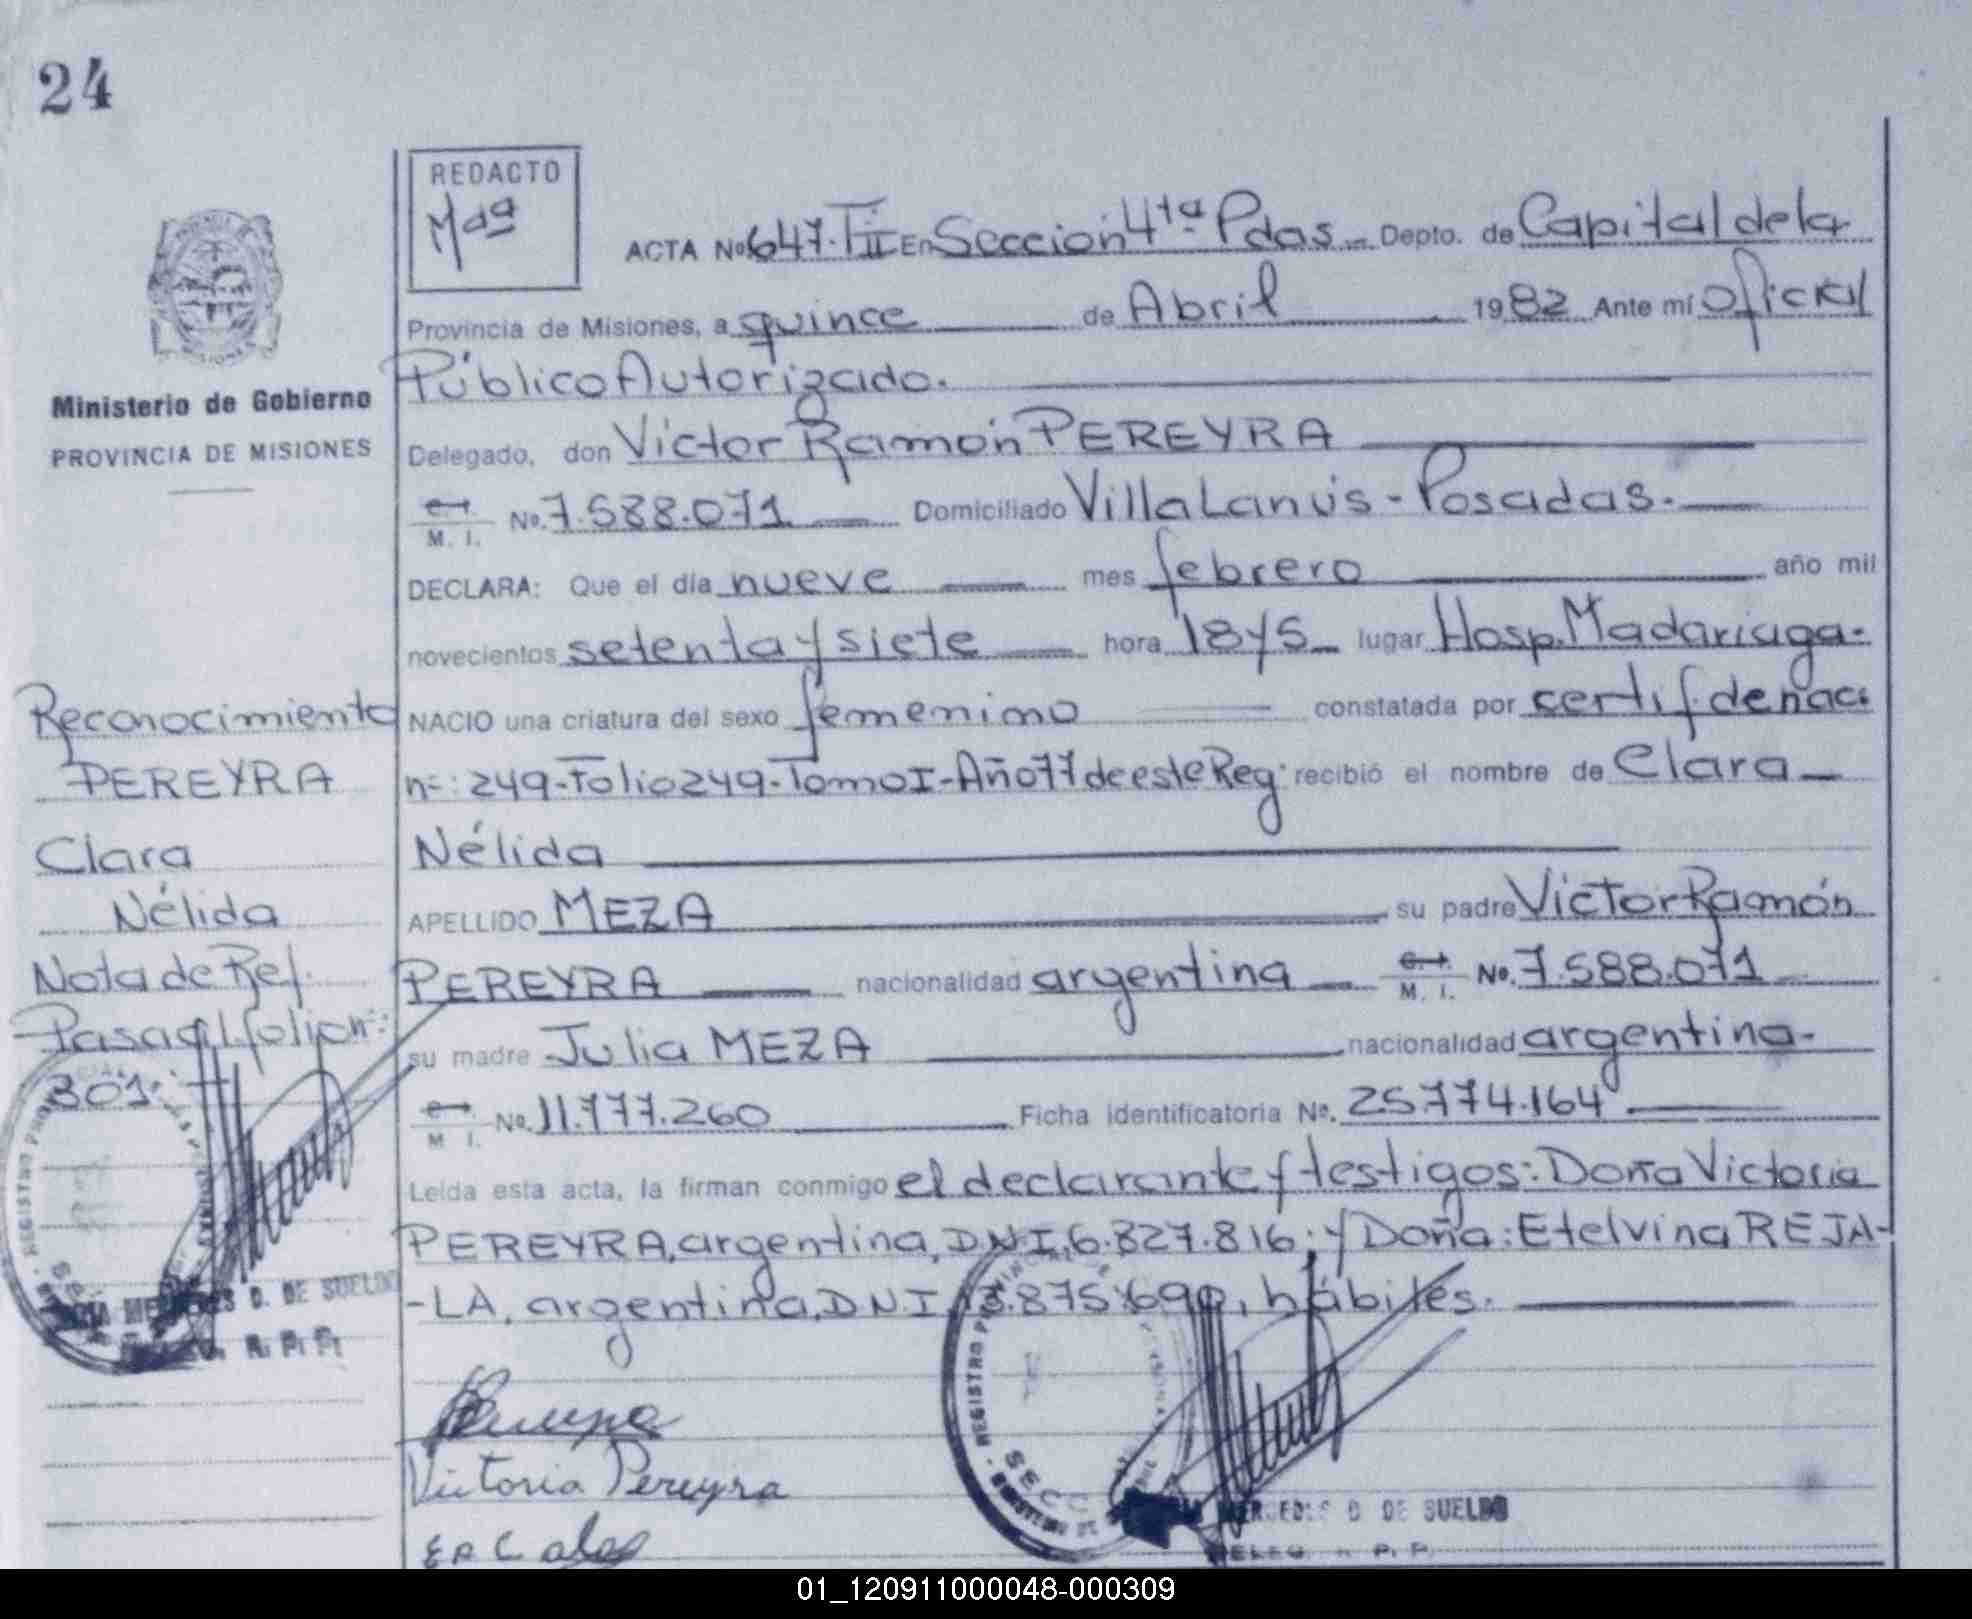 24
REDACTO
Mªª
ACTA Nº 647. T II En Sección 4ta Pdas Depto. de Capital de la
Provincia de Misiones, a quince de Abril 1982 Ante mí Oficial
Público Autorizado.
Delegado, don Victor Ramón PEREYRA
M. I. Nº. 7.588.071 Domiciliado Villa Lanús - Posadas.
DECLARA: Que el día nueve mes febrero año mil
novecientos setenta y siete hora 18 y 5 lugar Hosp. Madariaga.
NACIO una criatura del sexo femenino constatada por certif de nac.
nº: 249-Folio 249-Tomo I-Año 77 de este Reg. recibió el nombre de Clara
Nélida
APELLIDO MEZA su padre Victor Ramón
PEREYRA nacionalidad argentina M. I. Nº. 7.588.071
su madre Julia MEZA nacionalidad argentina.
M. I. Nº. 11.777.260 Ficha identificatoria Nº. 25.774.164
Leída esta acta, la firman conmigo el declarante y testigos: Doña Victoria
PEREYRA, argentina, D.N.I. 6.827.816; y Doña: Etelvina REJA-
-LA, argentina, D.N.I. 13.875.690, hábiles.
Victoria Pereyra
REGISTRO
SECC
MERCEDES D. DE SUELDO
DELEG. R. P. P.
Ministerio de Gobierno
PROVINCIA DE MISIONES
Reconocimiento
PEREYRA
Clara
Nélida
Nota de Ref.
Pasa al folio nº:
301.
REGISTRO
MERCEDES D. DE SUELDO
R. P. P.
01_120911000048-000309